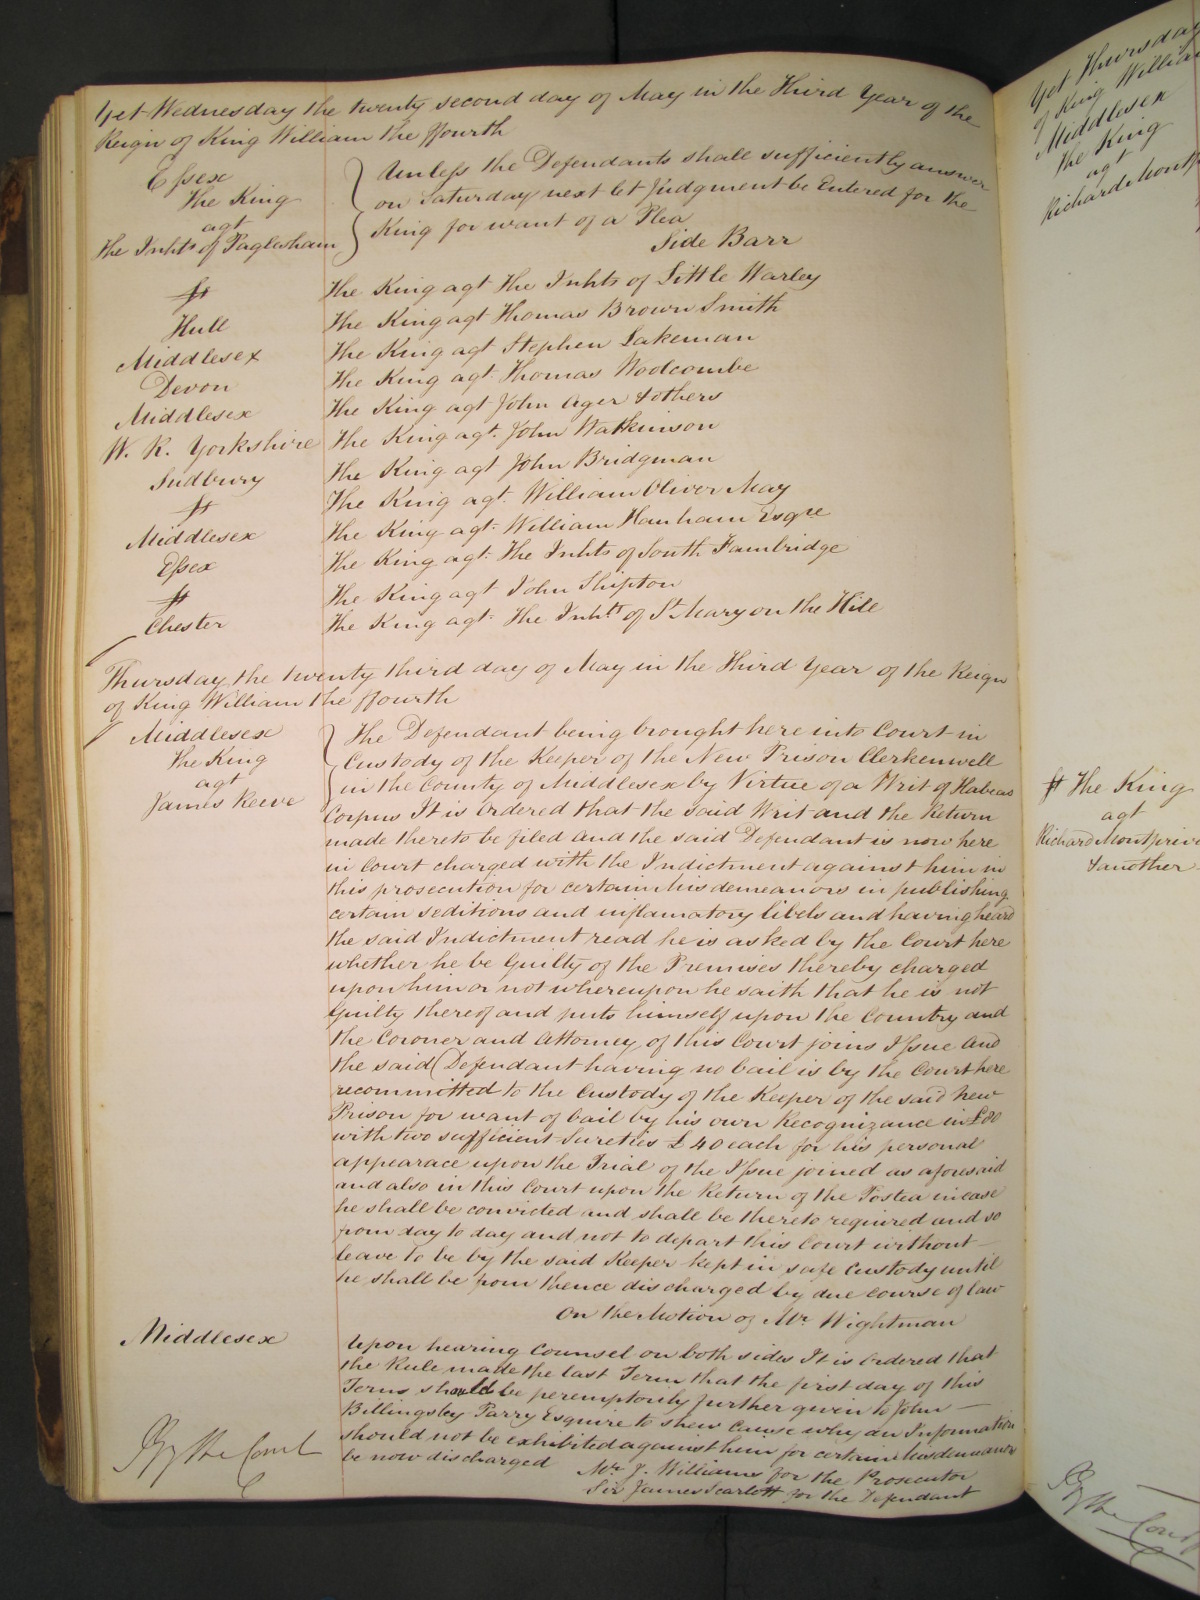 Yet Wednesday the twenty second day of May in the Third Year of the
Reign of King William the ffourth
Essex
The King
agt
The Inhts of Paglesham
Unless the Defendants shall sufficiently answer
on Saturday next let Judgment be Entered for the
King for want of a Plea
Side Barr
The King agt The Inhts of Little Warley
Hull The King agt Thomas Brown Smith
Middlesex The King agt Stephen Lakeman
Devon The King agt Thomas Wodcombe
Middlesex The King agt John Ager & others
W. R. Yorkshire The King agt. John Watkinson
Sudbury The King agt John Bridgman
The King agt. William Oliver May
Middlesex The King agt. William Hanham Esqre
Essex The King agt. The Inhts of South Fambridge
The King agt John Shipton
Chester The King agt. The Inhts of St. Mary on the Hill
Thursday the twenty third day of May in the Third Year of the Reign
of King William the ffourth
Middlesex
The King
agt
James Reeve
The Defendant being brought here into Court in
Custody of the Keeper of the New Prison Clerkenwell
in the County of Middlesex by Virtue of a Writ of Habeas
Corpus It is ordered that the said Writ and the Return
made thereto be filed and the said Defendant is now here
in Court charged with the Indictment against him in
this prosecution for certain misdemeanors in publishing
certain seditious and inflamatory libels and having heard
the said Indictment read he is asked by the Court here
whether he be Guilty of the Premises thereby charged
upon him or not whereupon he saith that he is not
Guilty thereof and puts himself upon the Country and
the Coroner and Attorney of this Court joins Issue and
the said Defendant having no bail is by the Court here
recommitted to the Custody of the Keeper of the said New
Prison for want of bail by his own Recognizance in £80
with two sufficient Sureties £40 each for his personal
appearace upon the Trial of the Issue joined as aforesaid
and also in this Court upon the Return of the Postea in case
he shall be convicted and shall be thereto required and so
from day to day and not to depart this Court without
leave to be by the said Keeper kept in safe Custody until
he shall be from thence discharged by due course of law
On the Motion of Mr. Wightman
Middlesex
Upon hearing Counsel on both sides It is ordered that
the Rule made the last Term that the first day of this
Term should be peremptorily further given to John
Billingsley Parry Esquire to shew cause why an Information
should not be exhibited against him for certain Misdemeanors
be now discharged
Mr. J. Williams for the Prosecutor
Sir James Scarlett for the Defendant
By the Court
Yet Thursday
of King William
Middlesex
The King
agt
The King
agt
Richard
& another
By the Court